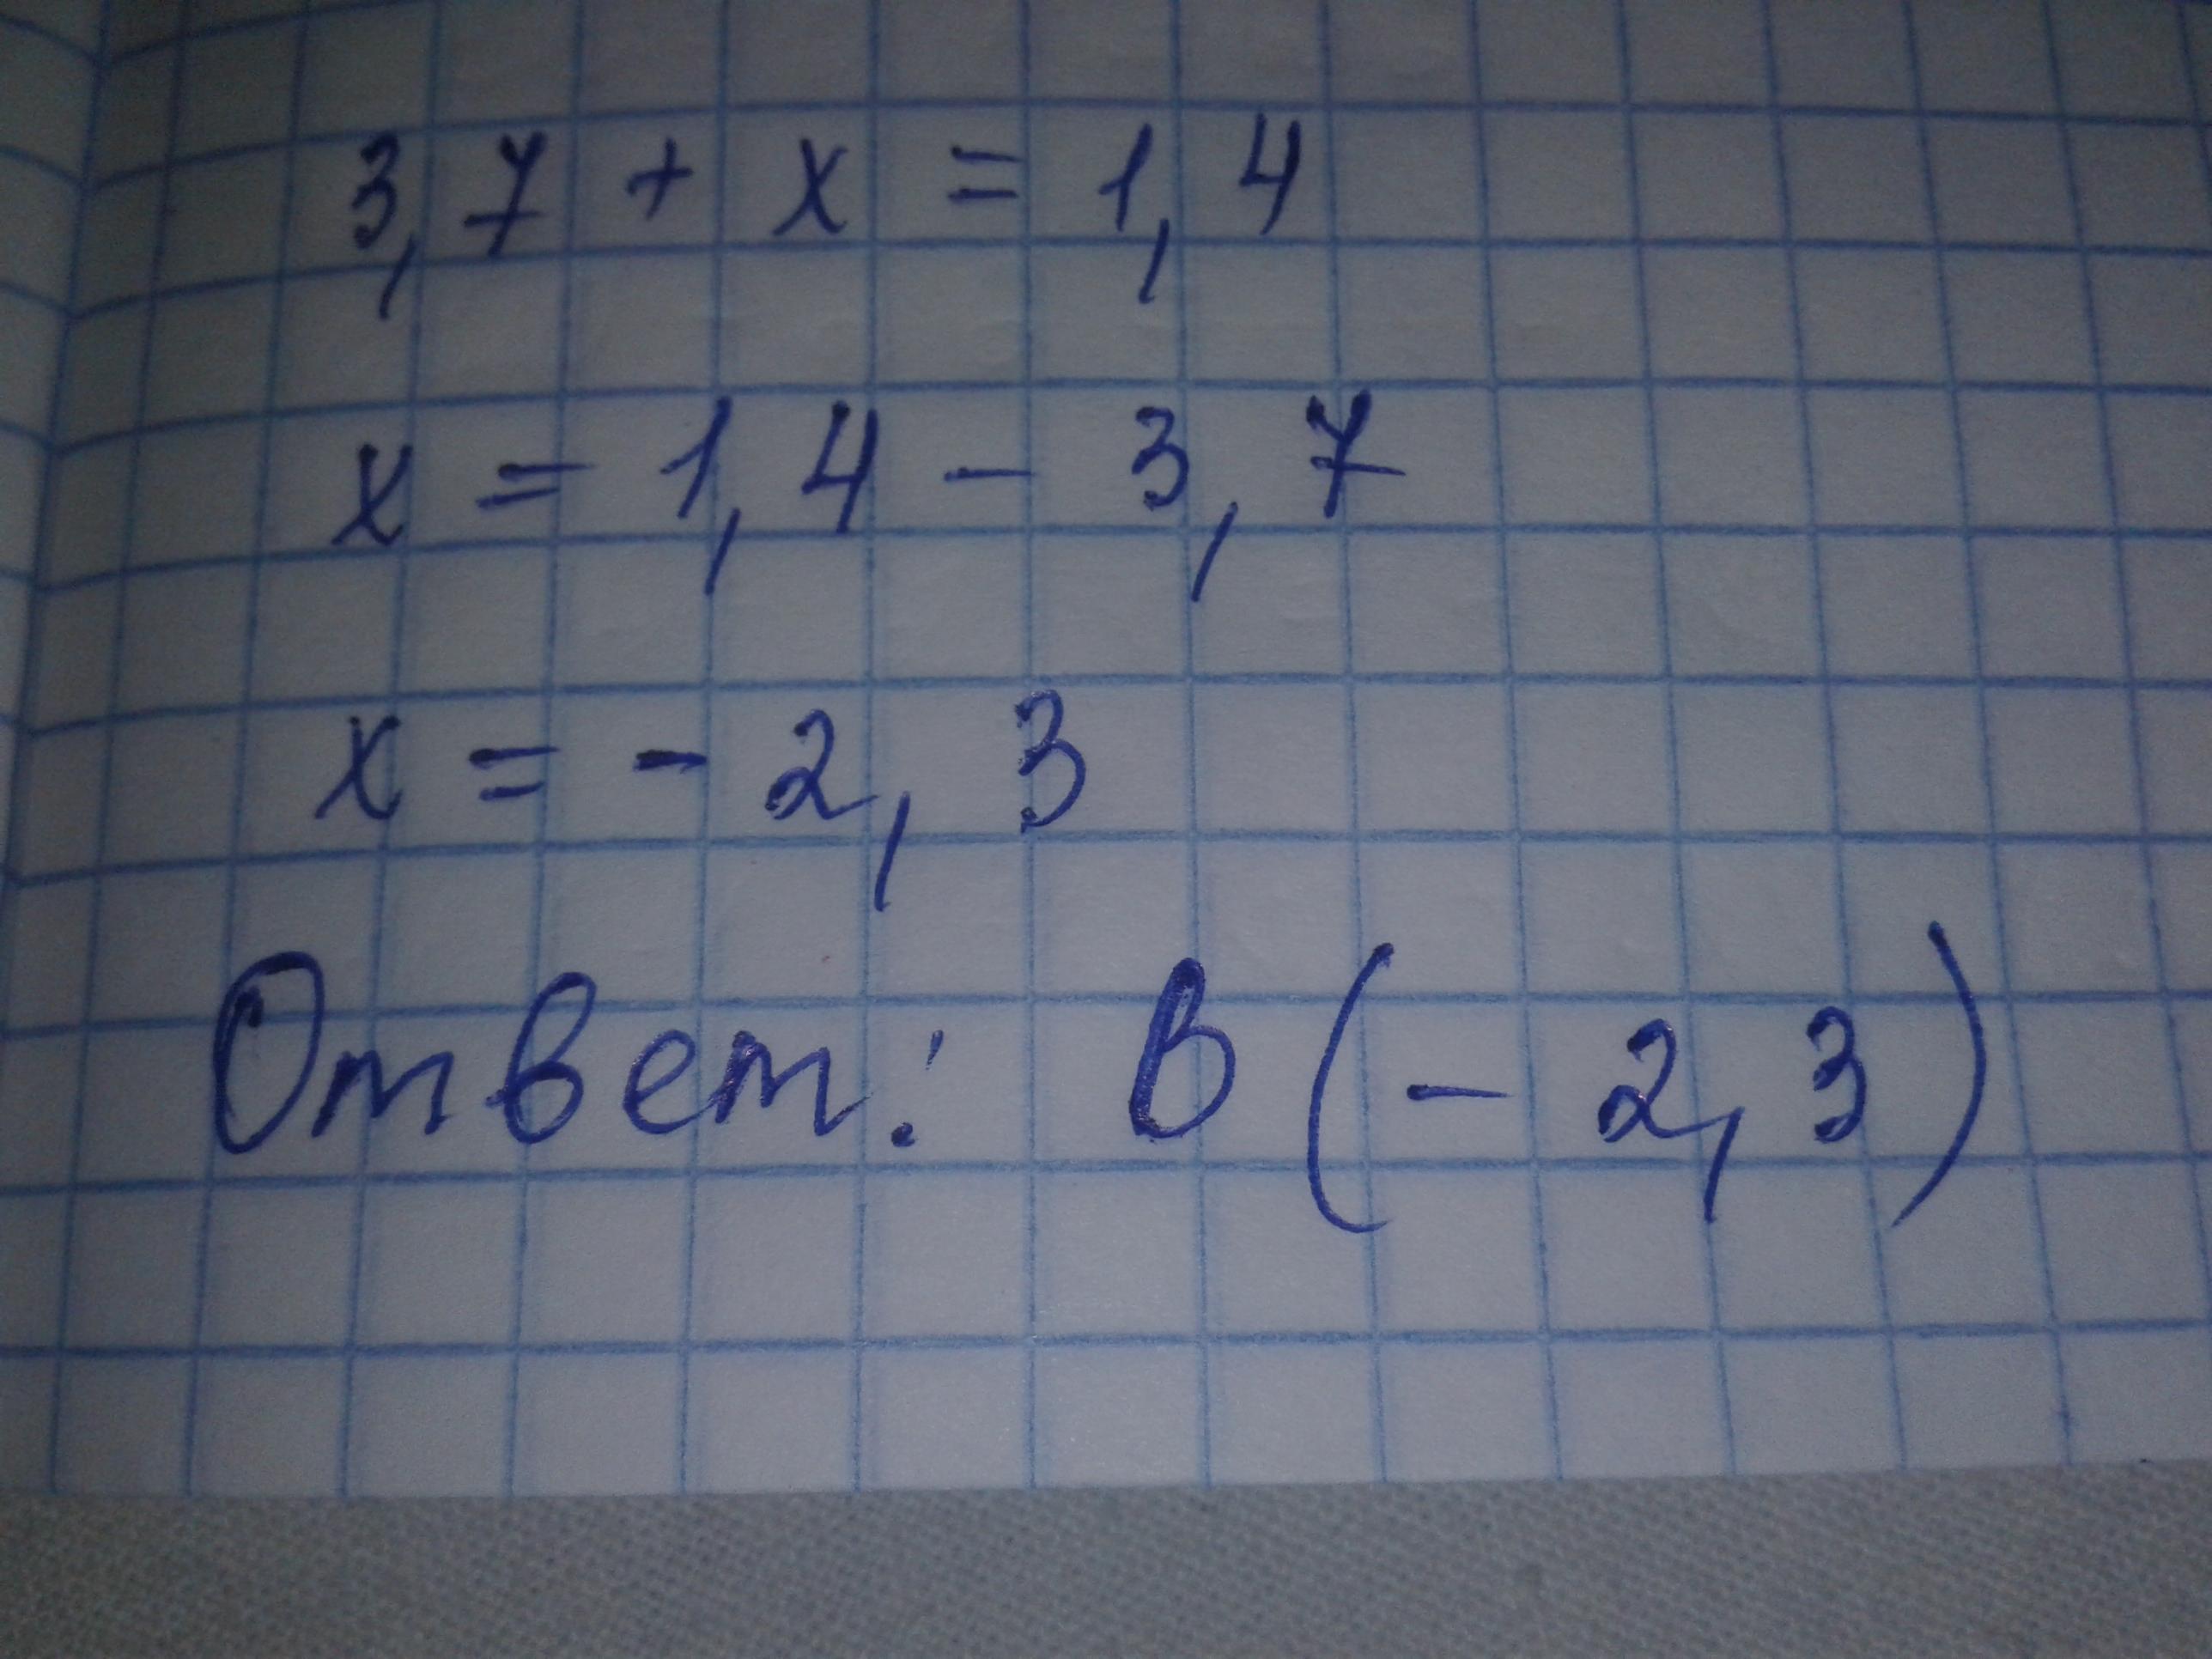 3,7 + x = 1,4
x = 1,4 - 3,7
x = - 2,3
Ответ: В (- 2,3)